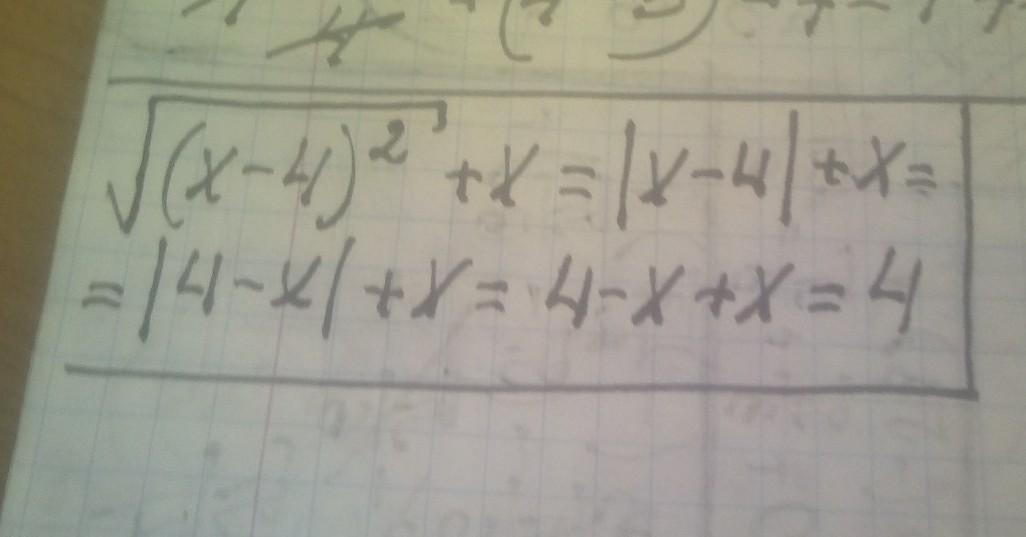 √(x-4)² + x = |x-4| + x =
= |4-x| + x = 4-x+x = 4